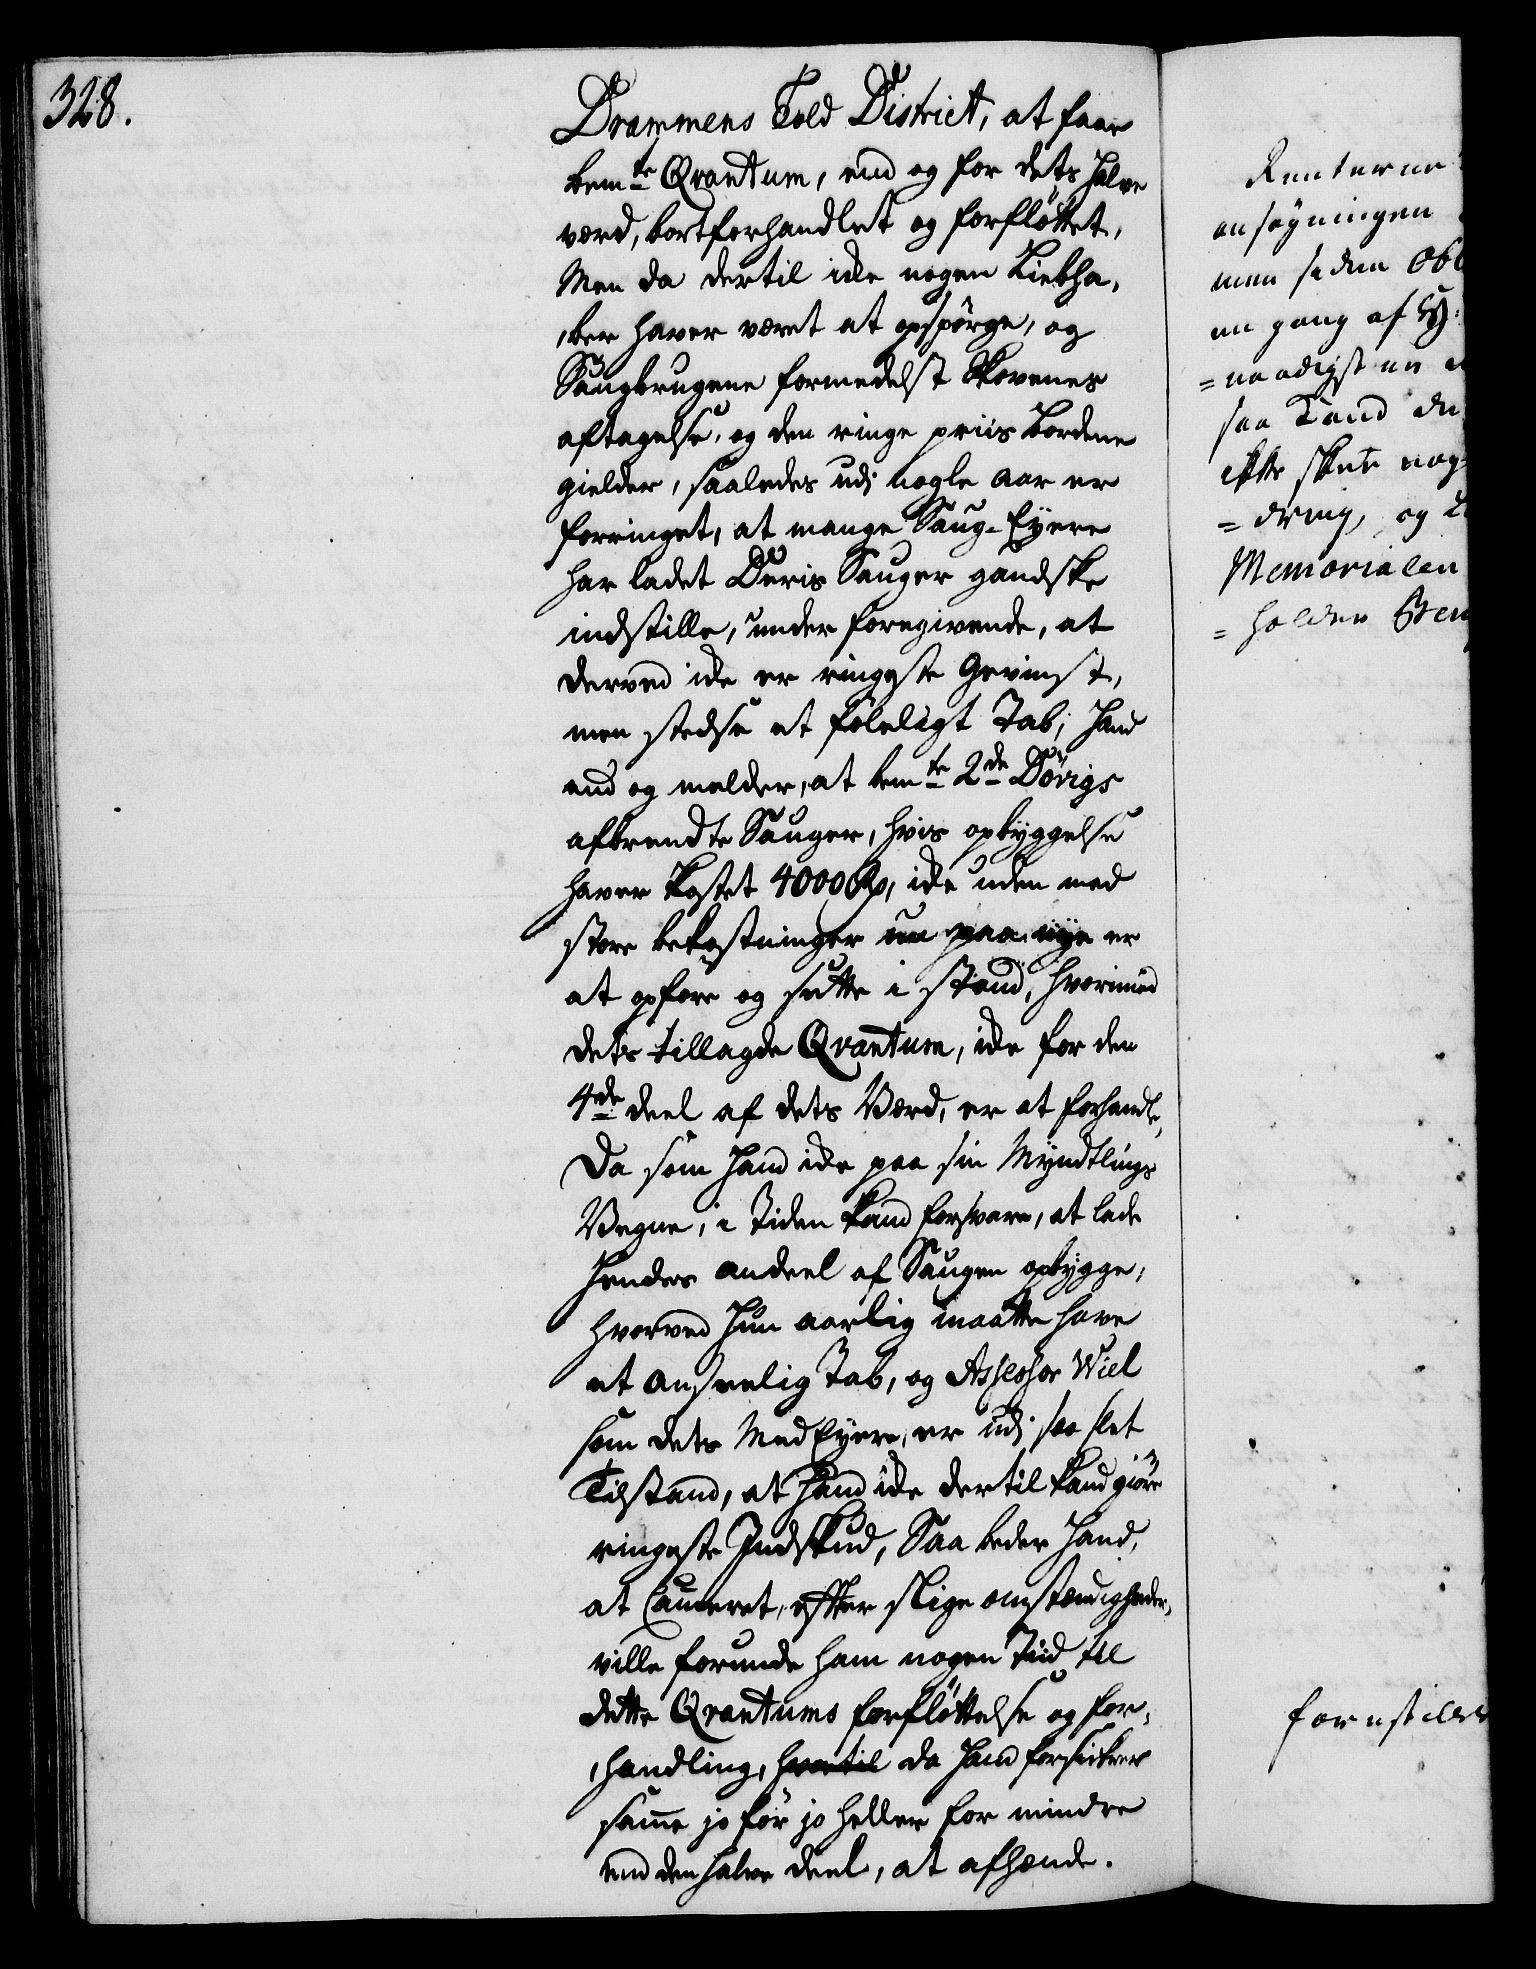 328.
Drammens Told District, at faae
bemte Qvantum, end og for dets halve
værd, bortforhandlet og forfløttet,
Men da dertil icke nogen Liebha,
,ber haver været at opspørge, og
Saugbrugene formedelst Skovenes
aftagelse, og den ringe priis Bordene
gielder, saaledes udj nogle Aar er
forringet, at mange Saug-Eyere
har ladet Deris Sauger gandske
indstille, under foregivende, at
derved icke er ringeste Gevinst,
men stedse et føleligt Tab; Hand
end og melder, at bemte 2de Dørigs
afbrendte Sauger, hvis opbyggelse
haver kostet 4000 Rd, icke uden med
store bekostninger paa nye er
at opføre og sette i stand, hvorimod
dets tillagde Qvantum, icke for den
4de deel af dets Værd, er at forhandle,
Da som Hand icke paa sin Myndtlings
Vegne, i Tiden kand forsvare, at lade
Hendes andeel af Saugen opbygge,
hvorved Hun aarlig maatte have
et anseelig Tab, og Assessor Wiel
som dets MedEyere, er udj saa slet
Tilstand, at Hand icke dertil kand giøre
ringeste Indskud, Saa beder Hand,
at Cameret, efter slige omstændigheder,
ville forunde ham nogen Tiid til
dette Qvantums forfløttelse og for,
,handling, hvortil da Hand forsikrer
samme jo før jo heller for mindre
end den halve deel, at afhænde.
Renterne
ansøgningen
men siden
en gang af
=naadigst en
saa Land
ikke skete nog
=dring, og
Memorialen
=holder
forestilles